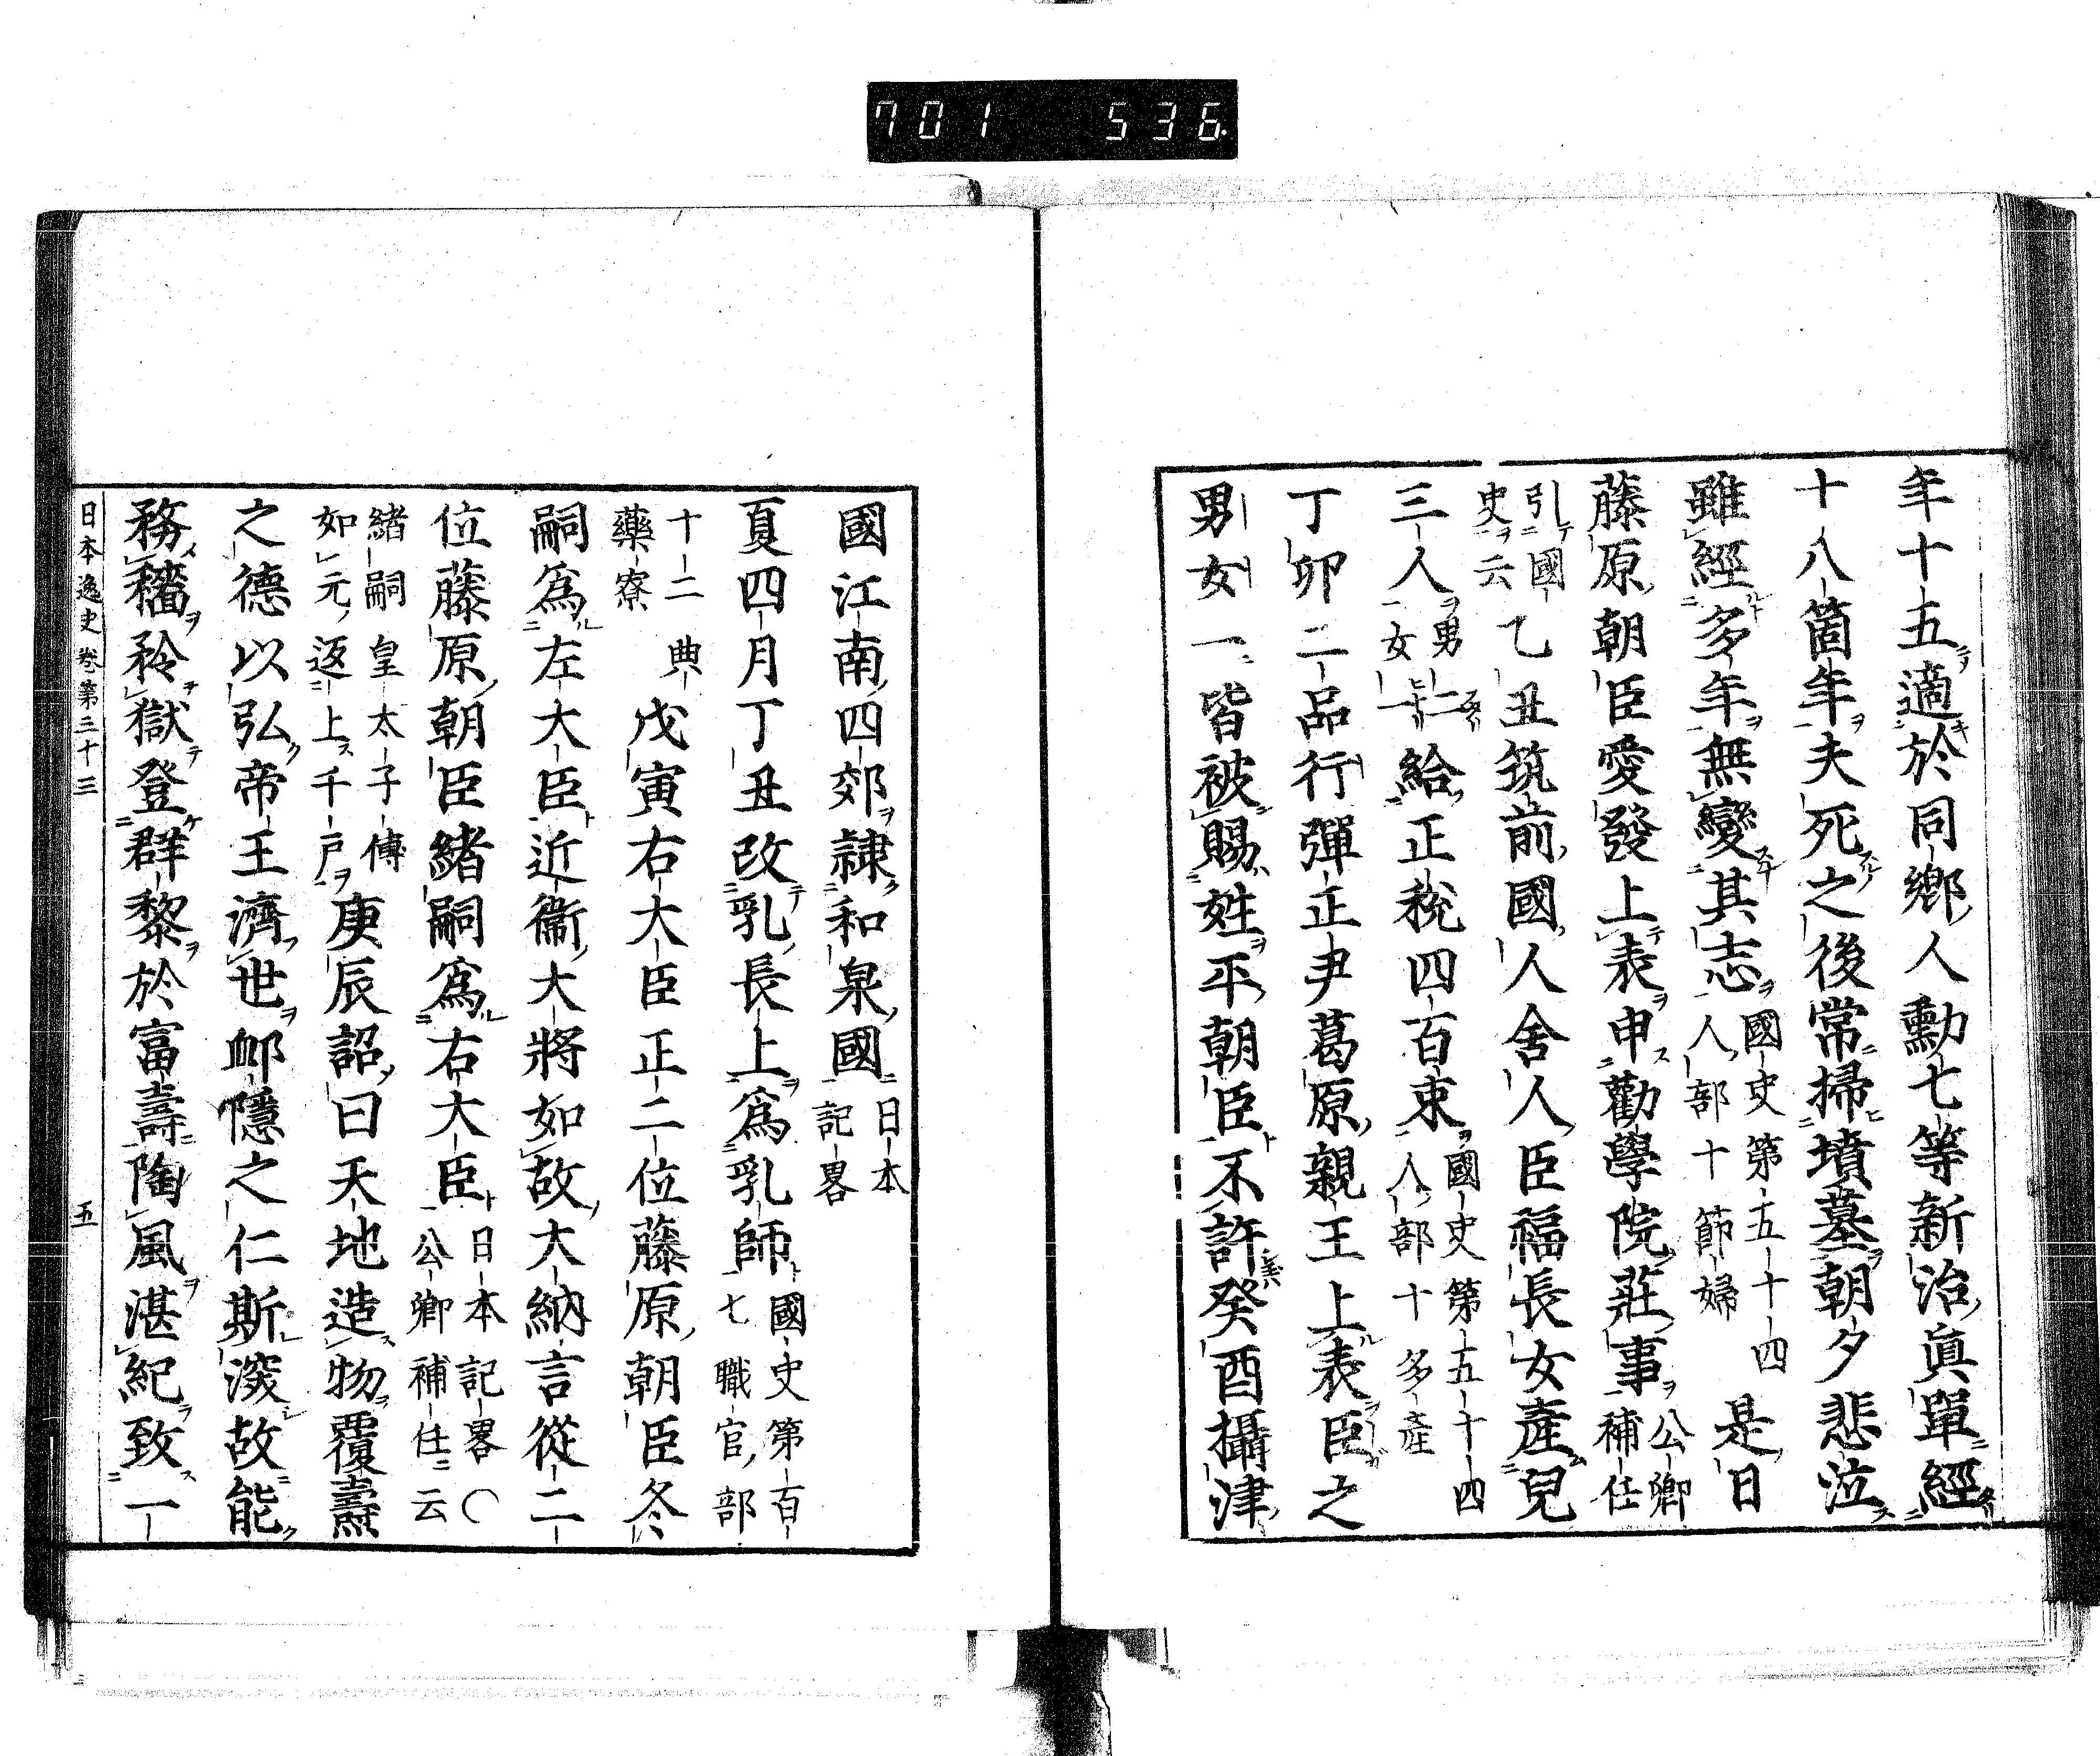 701 536
年十五適於同郷人勳七等新治眞單經
十八箇年夫死之後常掃墳墓朝夕悲泣
雖經多年無變其志國史第五十四人部十節婦是日
藤原朝臣愛發上表申勸學院莊事公卿補任
引國史云乙丑筑前國人舍人臣福長女産兒
三人男二女一給正税四百束國史第五十四人部十多産
丁卯二品行彈正尹葛原親王上表臣之
男女一皆被賜姓平朝臣不許癸酉攝津
國江南四郊隷和泉國日本記畧
夏四月丁丑改乳長上爲乳師國史第百七職官部
十二典藥寮戊寅右大臣正二位藤原朝臣冬
嗣爲左大臣近衞大將如故大納言從二
位藤原朝臣緒嗣爲右大臣日本記畧〇公卿補任云
緒嗣皇太子傅如元返上千戸庚辰詔曰天地造物覆燾
之德以弘帝王濟世邮隱之仁斯深故能
務穡矜獄登群黎於富壽陶風湛紀致一
日本逸史卷第三十三 五